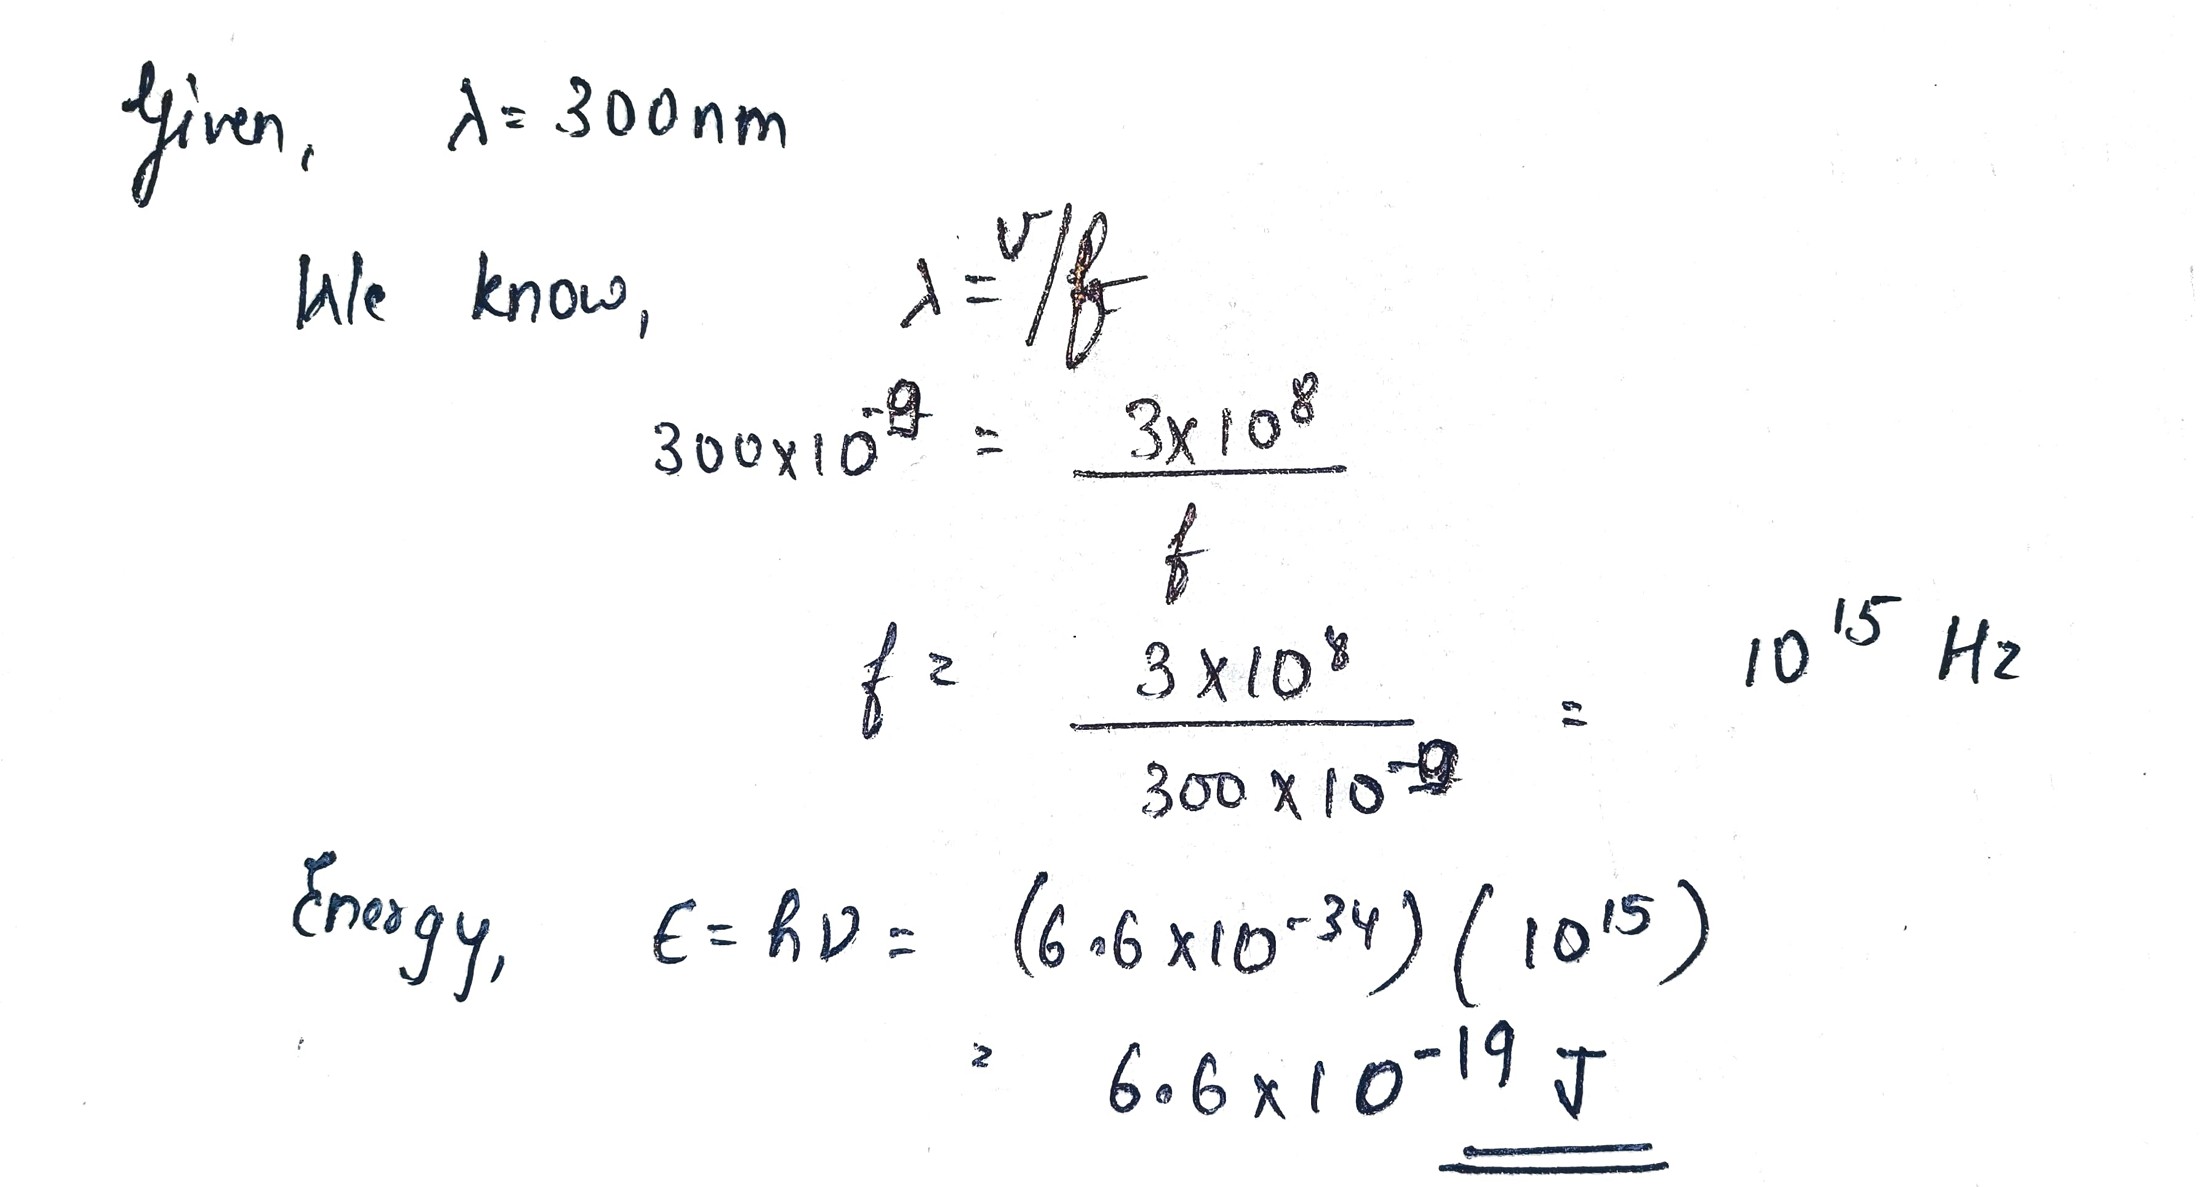 Given, λ = 300nm
We know, λ = v/f
300x10⁻⁹ = 3x10⁸ / f
f = 3x10⁸ / 300x10⁻⁹ = 10¹⁵ Hz
Energy, E = hν = (6.6x10⁻³⁴)(10¹⁵)
= 6.6x10⁻¹⁹ J